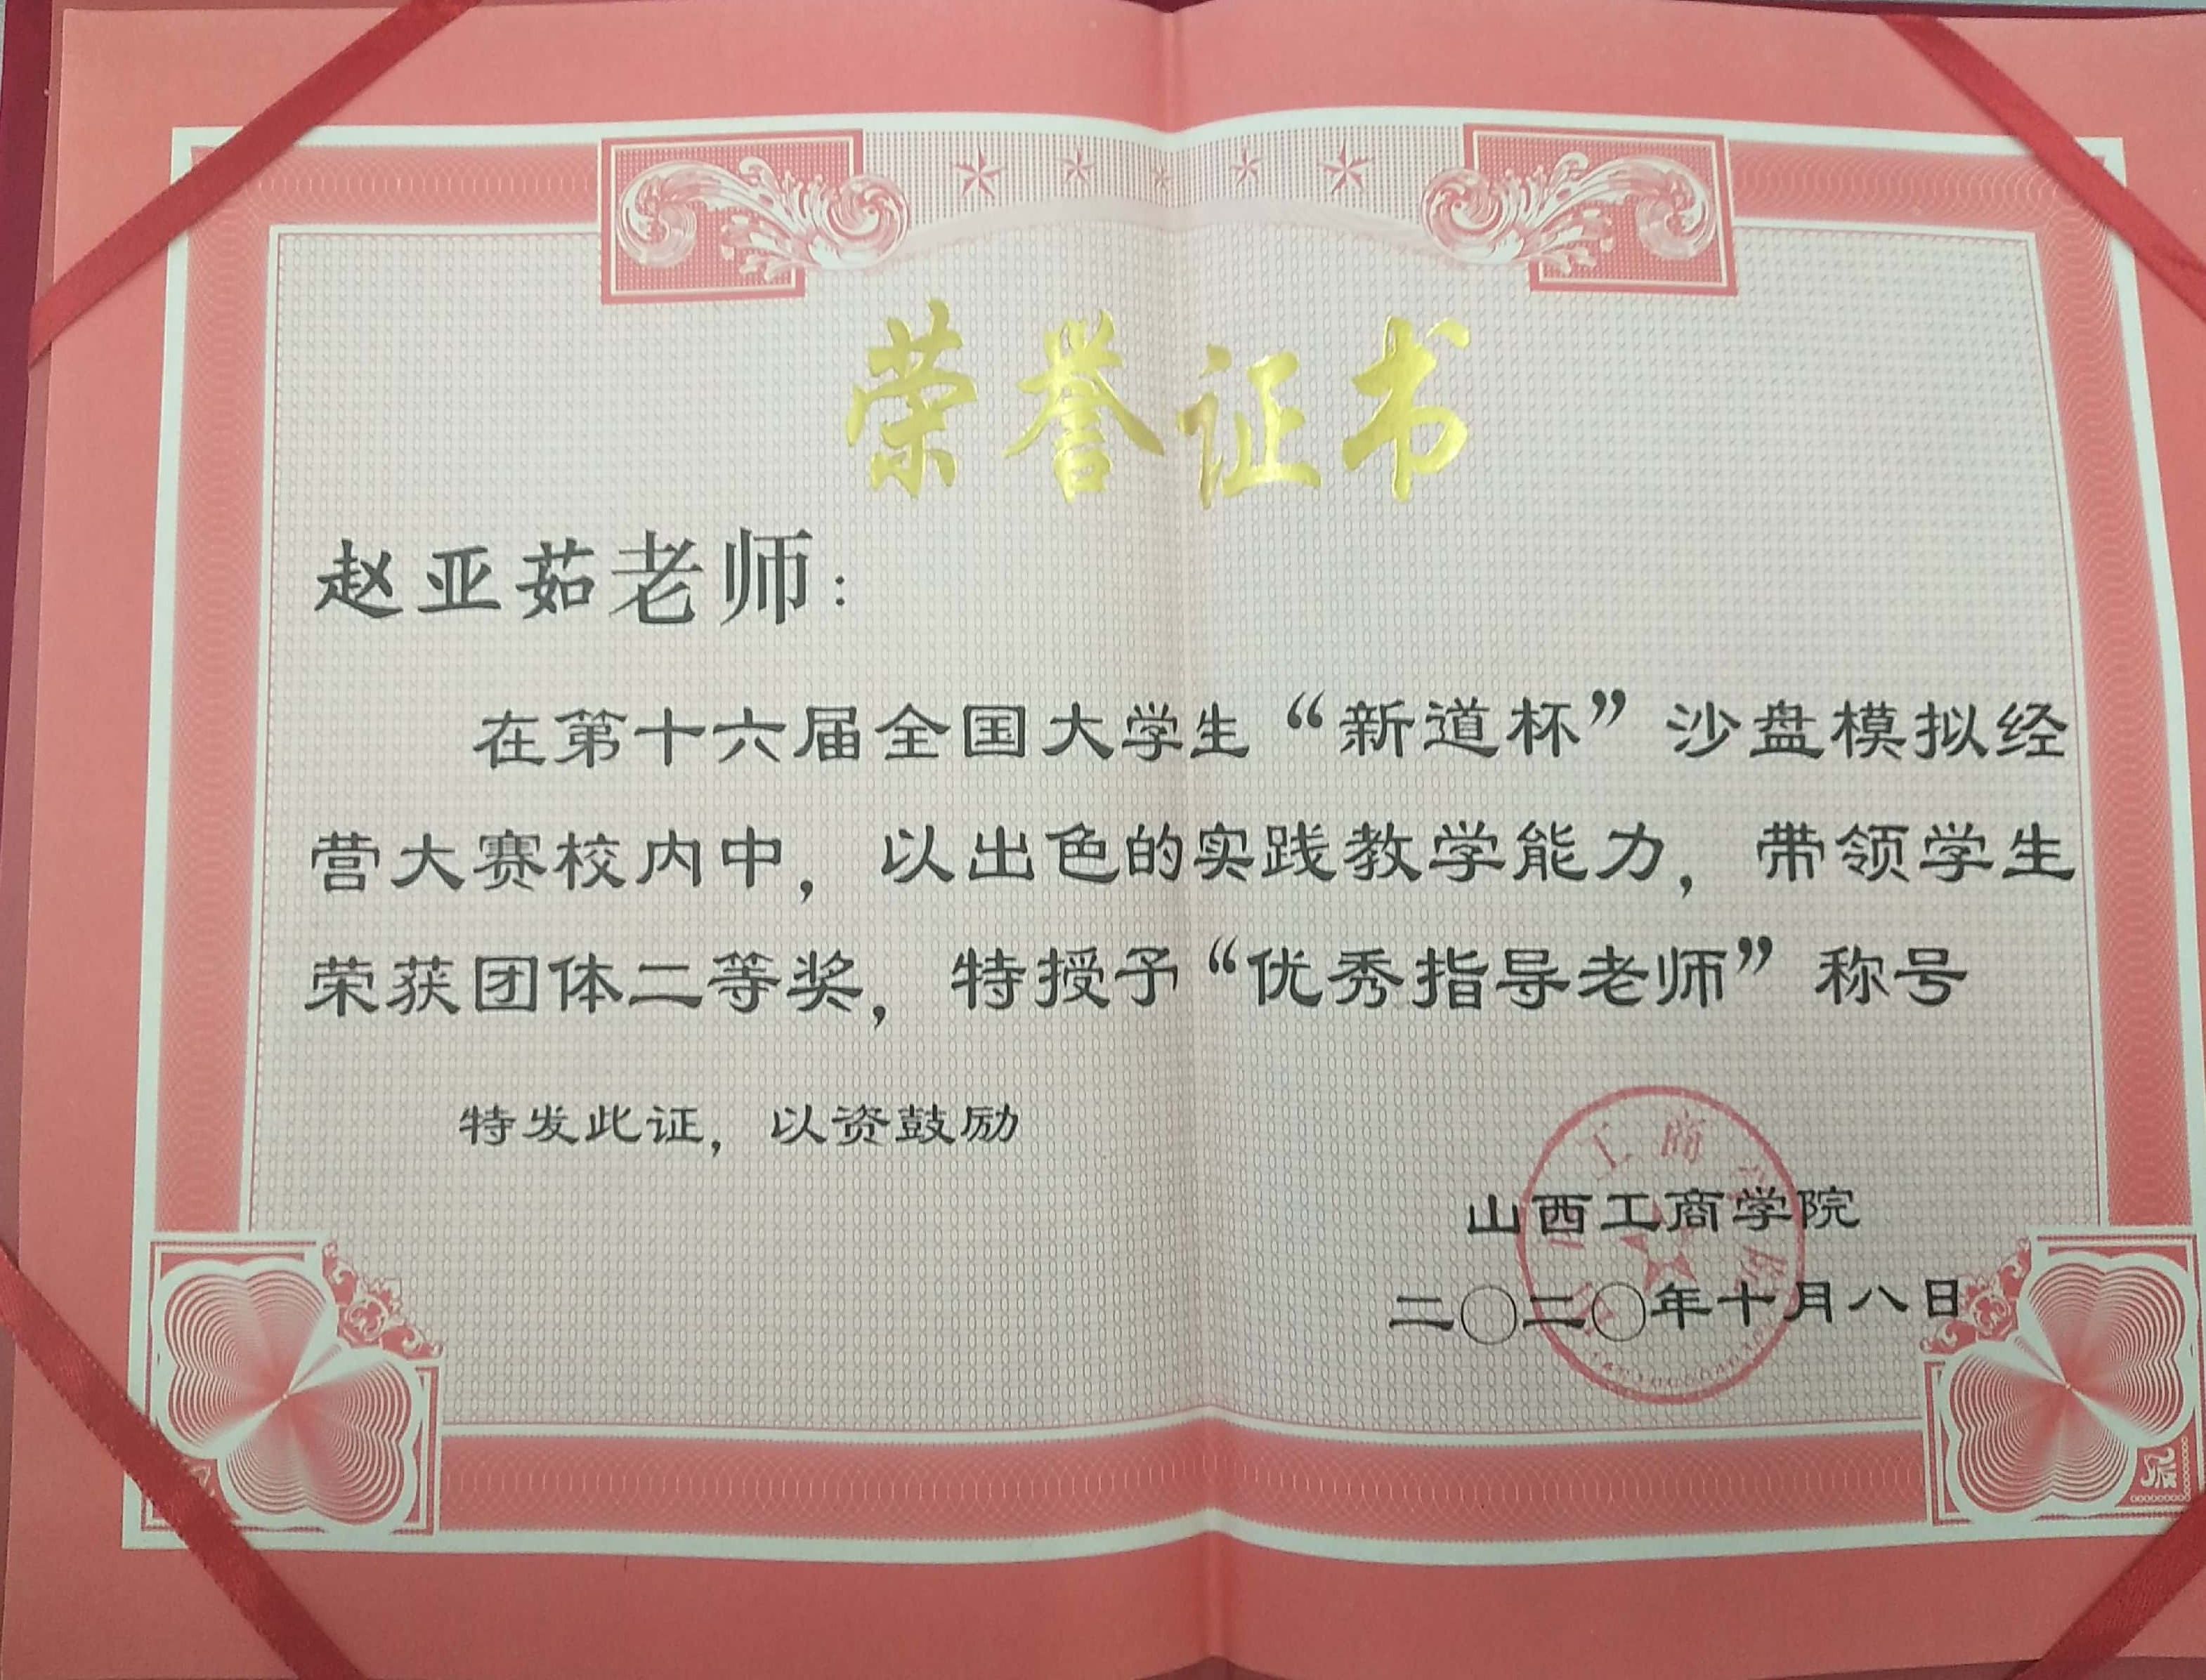 荣誉证书
赵亚茹老师：
在第十六届全国大学生“新道杯”沙盘模拟经
营大赛校内中，以出色的实践教学能力，带领学生
荣获团体二等奖，特授予“优秀指导老师”称号
特发此证，以资鼓励
工商
山西工商学院
二〇二〇年十月八日